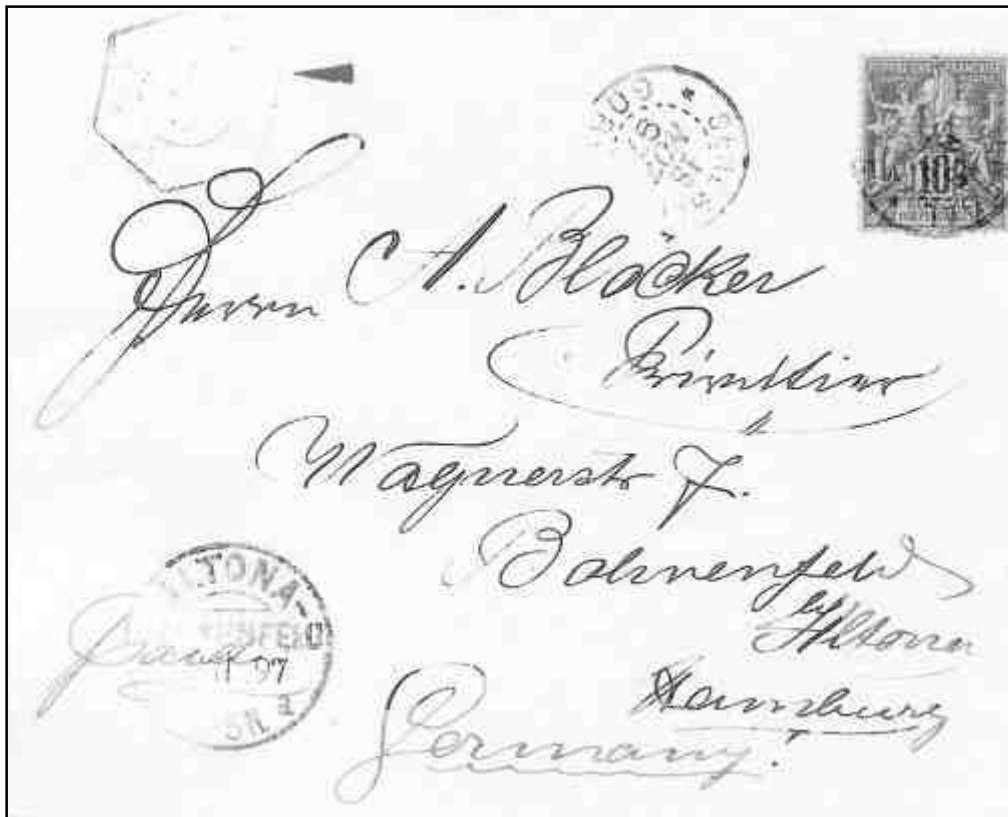 10
Herrn A. Blöcker
Privatier
Wagnerstr 7.
Bahrenfeld
by Altona
Hamburg
Germany.
ALTONA-
97